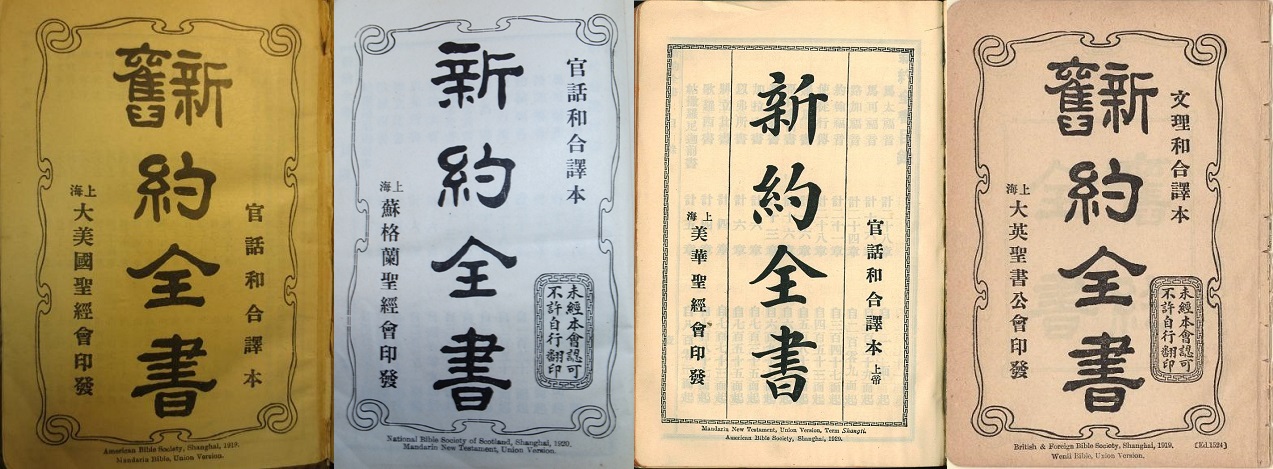 官話和合譯本
新舊
約全書
上海
大美國聖經會印發
American Bible Society, Shanghai, 1919.
Mandarin Bible, Union Version.
官話和合譯本
新約全書
未經本會認可
不許自行翻印
上海
蘇格蘭聖經會印發
National Bible Society of Scotland, Shanghai, 1920.
Mandarin New Testament, Union Version.
官話和合譯本
上帝
新約全書
上海
美華聖經會印發
Mandarin New Testament, Union Version, Term Shangti.
American Bible Society, Shanghai, 1919.
文理和合譯本
新舊
約全書
未經本會認可
不許自行翻印
上海
大英聖書公會印發
British & Foreign Bible Society, Shanghai, 1919.
[Ed.1524]
Wenli Bible, Union Version.